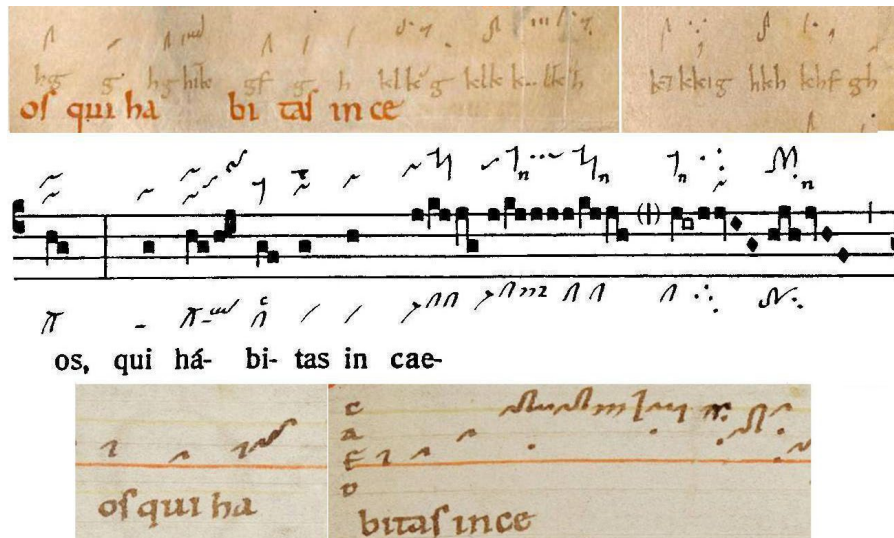 hg g hg hik gf g h klk g klk k.. lk h hkh khf gh
oſ qui ha bi taſ in ce
os, qui há- bi- tas in cae-
c
a
F
D
oſ qui ha bitaſ in ce